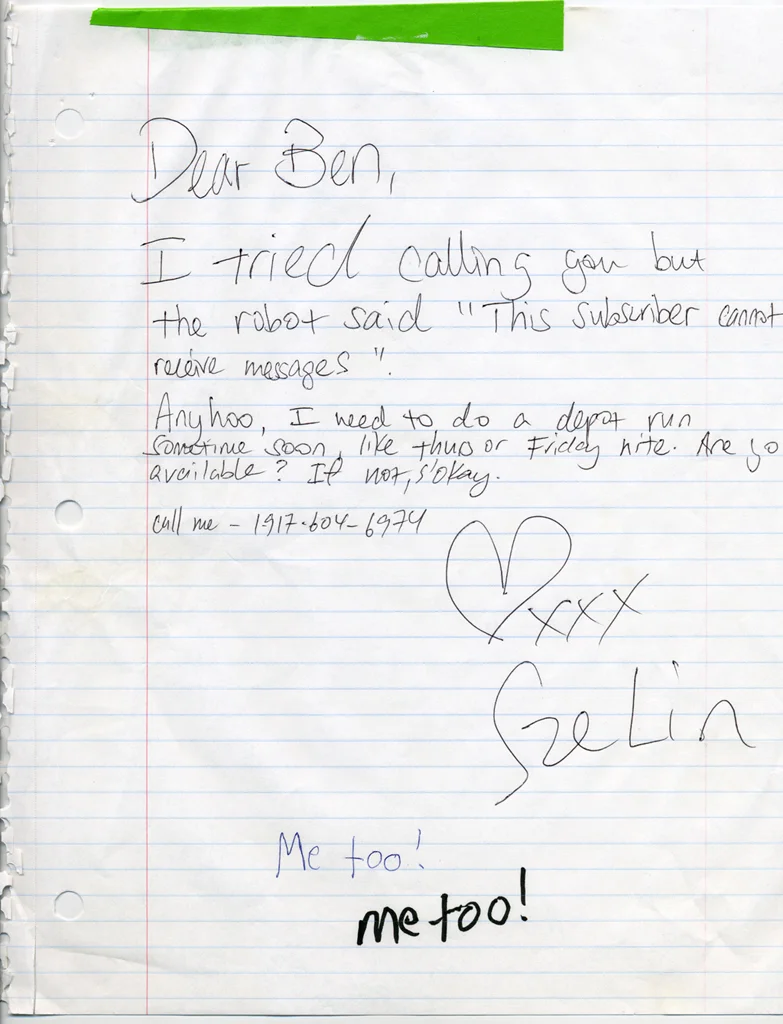 Dear Ben,
I tried calling you but
the robot said "This subscriber cannot
receive messages".
Anyhoo, I need to do a depot run
sometime soon, like thurs or Friday nite. Are yo
available? If not, s'okay.
call me - 1917-604-6974
xxx
Sze Lin
Me too!
me too!